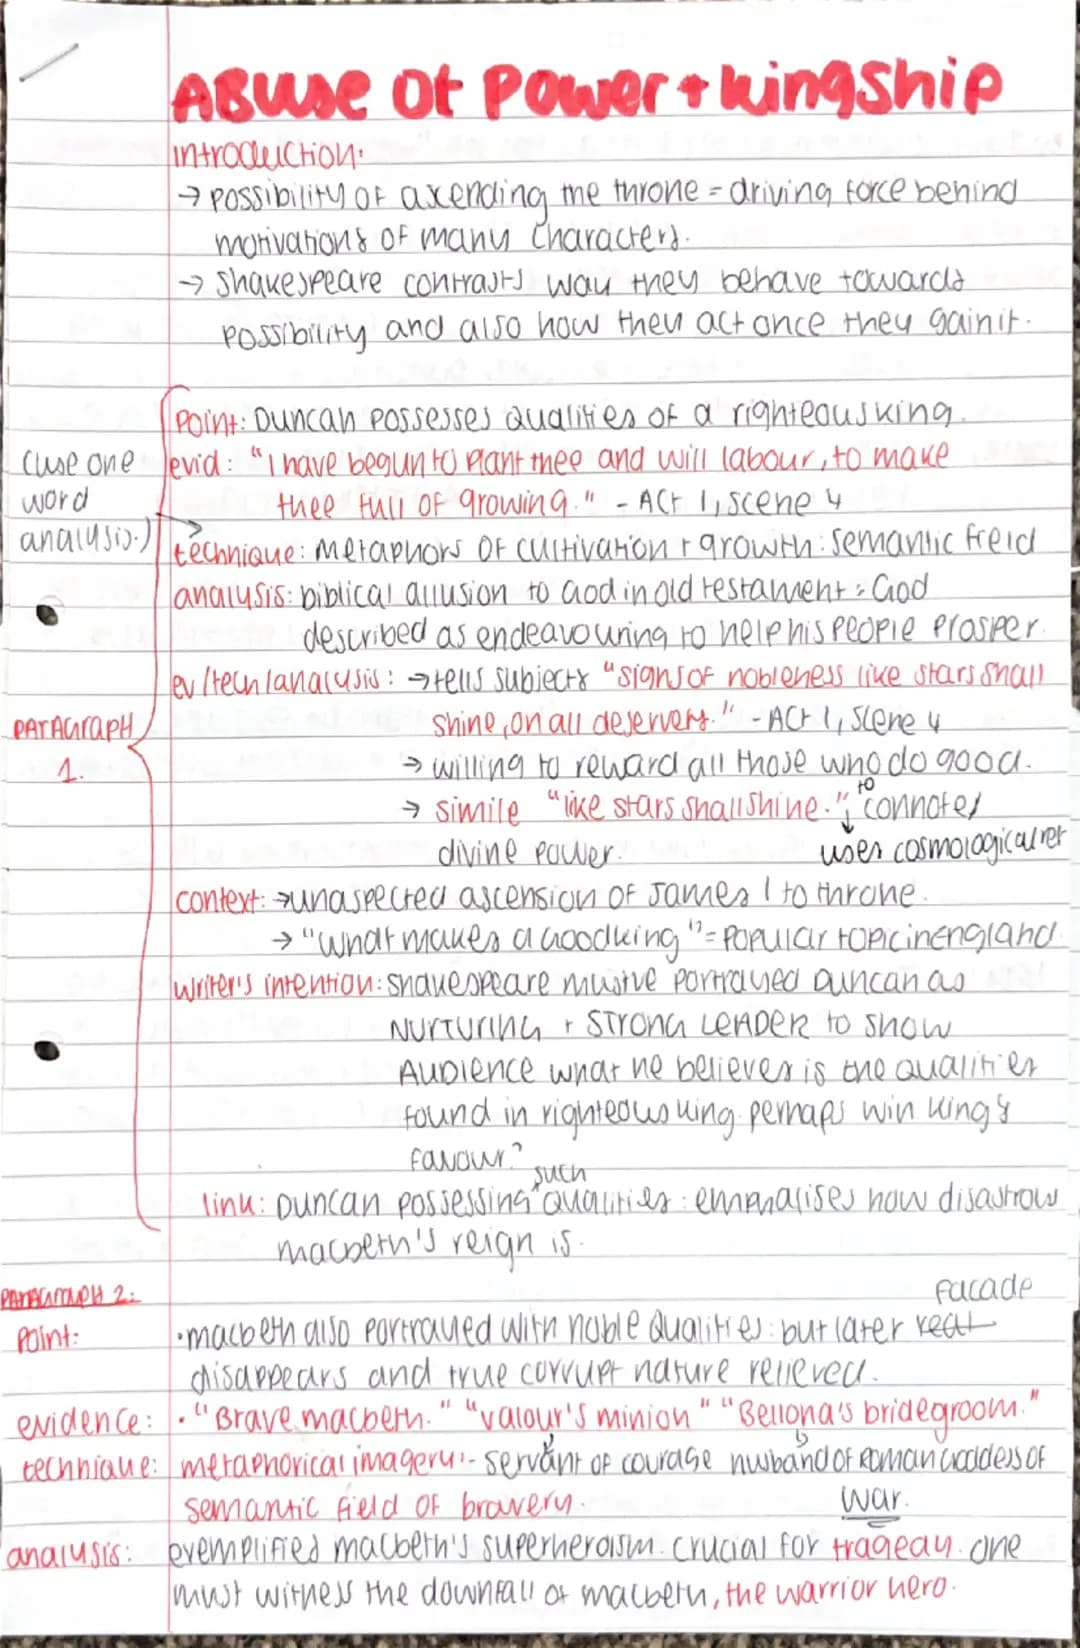 ABuse of Power + kingship
introduction:
→ possibility of axending the throne = driving force behind
motivations of many characters.
→ Shakespeare contrasts way they behave towards
possibility and also how they act once they gain it.
Point: Duncan possesses qualities of a righteous king.
(use one
word
analysis.)
evid: "I have begun to plant thee and will labour, to make
thee full of growing." - Act 1, scene 4
technique: metaphors of cultivation + growth: semantic field
analysis: biblical allusion to God in old testament: God
described as endeavouring to help his people prosper.
PARAGRAPH
1.
ev/tech/analysis: → tells subjects "signs of nobleness like stars shall
shine, on all deservers." - Act 1, Scene 4
→ willing to reward all those who do good.
→ simile "like stars shall shine." to connotes
divine power.
uses cosmological ref
context: → unaspected ascension of James 1 to throne.
→ "what makes a good king" = popular topic in england.
writer's intention: shakespeare must've portrayed Duncan as
NURTURING + STRONG LEADER to show
AUDIENCE what he believes is the qualities
found in righteous king. perhaps win king's
favour?
link: Duncan possessing such qualities: emphasises how disastrous
macbeth's reign is.
PARAGRAPH 2:
Point:
• macbeth also portrayed with noble qualities: but later real facade
disappears and true corrupt nature relieved.
evidence: • "Brave macbeth." "valour's minion" "Bellona's bridegroom."
technique: metaphorical imagery:- servant of courage husband of Roman Goddess of
war.
semantic field of bravery.
analysis: exemplified macbeth's superheroism. crucial for tragedy. one
must witness the downfall of macbeth, the warrior hero.